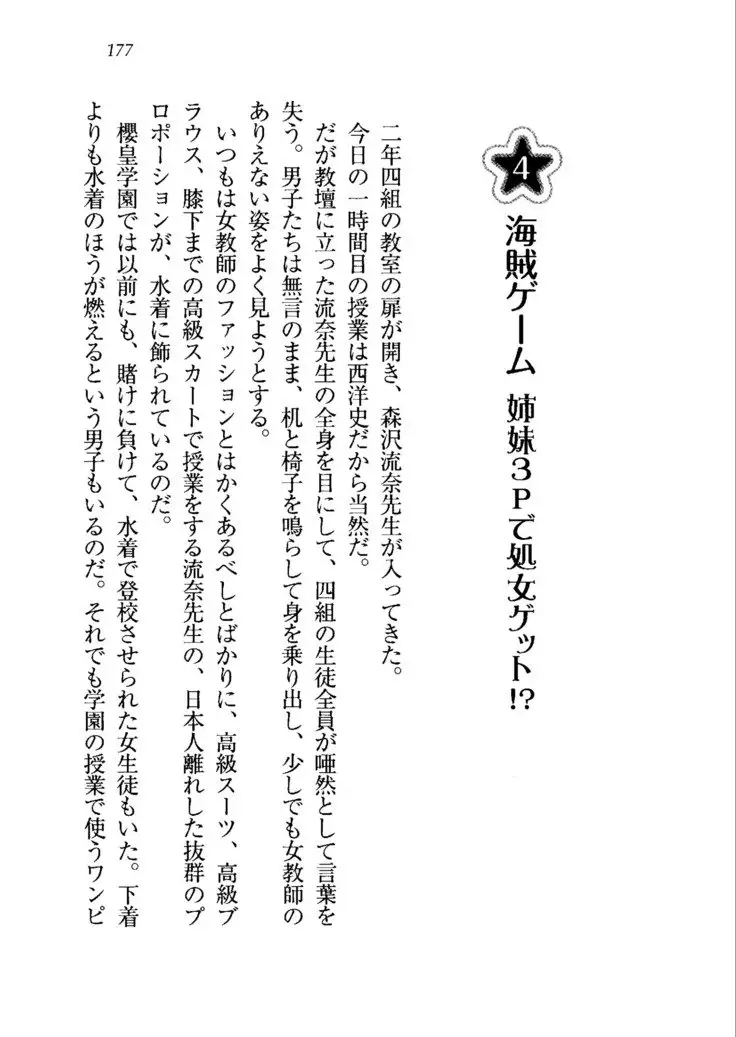 177
4
海賊ゲーム 姉妹3Pで処女ゲット!?
二年四組の教室の扉が開き、森沢流奈先生が入ってきた。
今日の一時間目の授業は西洋史だから当然だ。
だが教壇に立った流奈先生の全身を目にして、四組の生徒全員が唖然として言葉を
失う。男子たちは無言のまま、机と椅子を鳴らして身を乗り出し、少しでも女教師の
ありえない姿をよく見ようとする。
いつもは女教師のファッションとはかくあるべしとばかりに、高級スーツ、高級ブ
ラウス、膝下までの高級スカートで授業をする流奈先生の、日本人離れした抜群のプ
ロポーションが、水着に飾られているのだ。
櫻皇学園では以前にも、賭けに負けて、水着で登校させられた女生徒もいた。下着
よりも水着のほうが燃えるという男子もいるのだ。それでも学園の授業で使うワンピ